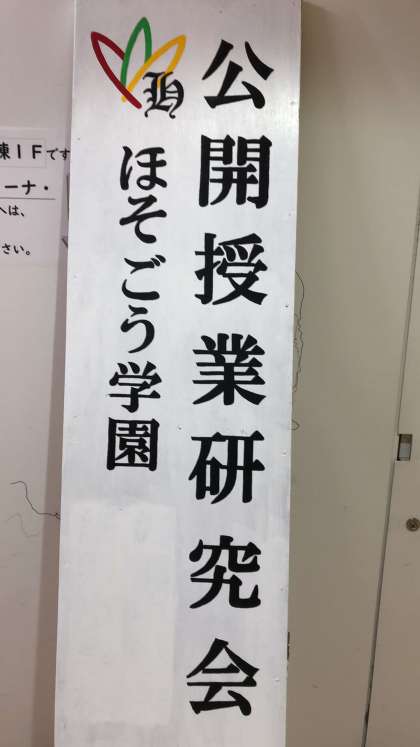 公開授業研究会
ほそごう学園
H
棟1Fです
ーナ・
へは、
さい。